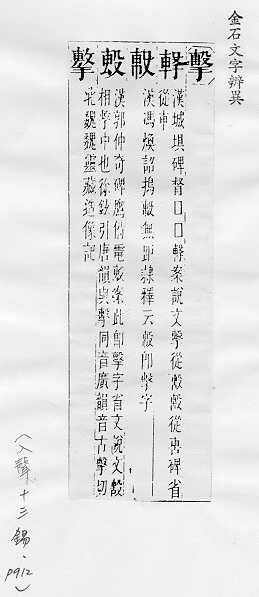 金石文字辨異
擊
毄
漢城垻碑督口口案說文擊從毄毄從軎省
從車
漢馮煥詔搗無距隸釋云即擊字
漢郭仲奇碑鷹偫電毄案此即擊字省文說文毄
相擊中也徐鉉引唐韻與擊同音廣韻音古擊切
北魏魏靈藏造像記
(入聲十三錫.p912)